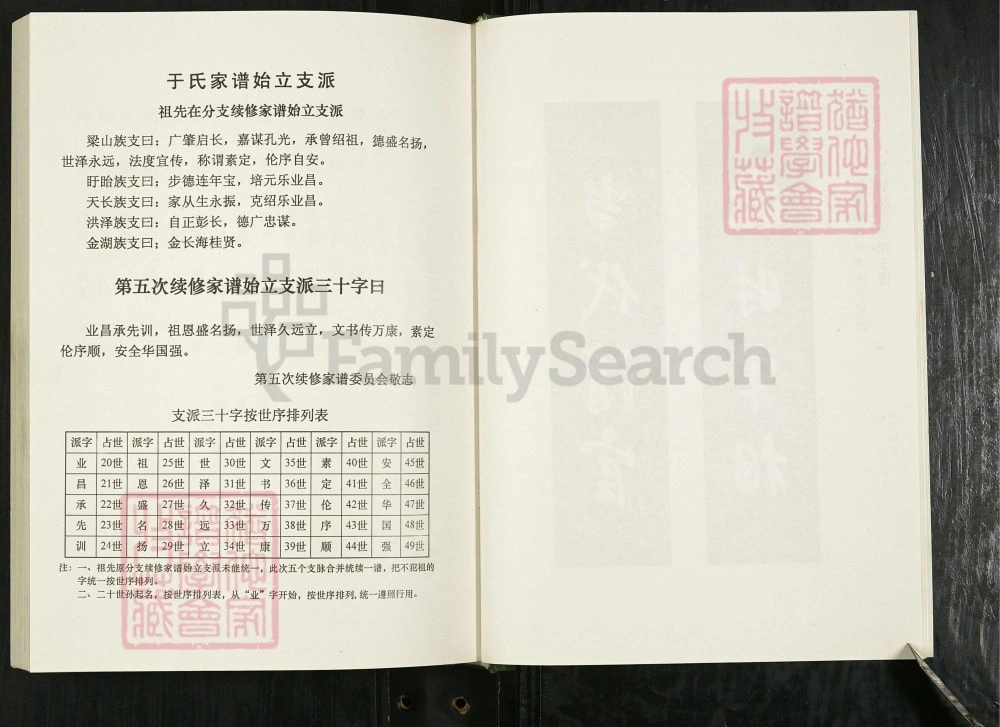 于氏家谱始立支派
祖先在分支续修家谱始立支派
梁山族支曰：广肇启长，嘉谋孔光，承曾绍祖，德盛名扬，
世泽永远，法度宜传，称谓素定，伦序自安。
盱眙族支曰：步德连年宝，培元乐业昌。
天长族支曰：家从生永振，克绍乐业昌。
洪泽族支曰：自正彭长，德广忠谋。
金湖族支曰；金长海桂贤。
第五次续修家谱始立支派三十字曰
业昌承先训，祖恩盛名扬，世泽久远立，文书传万康，素定
伦序顺，安全华国强。
第五次续修家谱委员会敬志
支派三十字按世序排列表
派字 占世 派字 占世 派字 占世 派字 占世 派字 占世 派字 占世
业 20世 祖 25世 世 30世 文 35世 素 40世 安 45世
昌 21世 恩 26世 泽 31世 书 36世 定 41世 全 46世
承 22世 盛 27世 久 32世 传 37世 伦 42世 华 47世
先 23世 名 28世 远 33世 万 38世 序 43世 国 48世
训 24世 扬 29世 立 34世 康 39世 顺 44世 强 49世
注：一、祖先原分支续修家谱始立支派未能统一，此次五个支脉合并统续一谱，把不犯祖的
字统一按世序排列。
二、二十世孙起名，按世序排列表，从“业”字开始，按世序排列，统一遵照行用。
FamilySearch